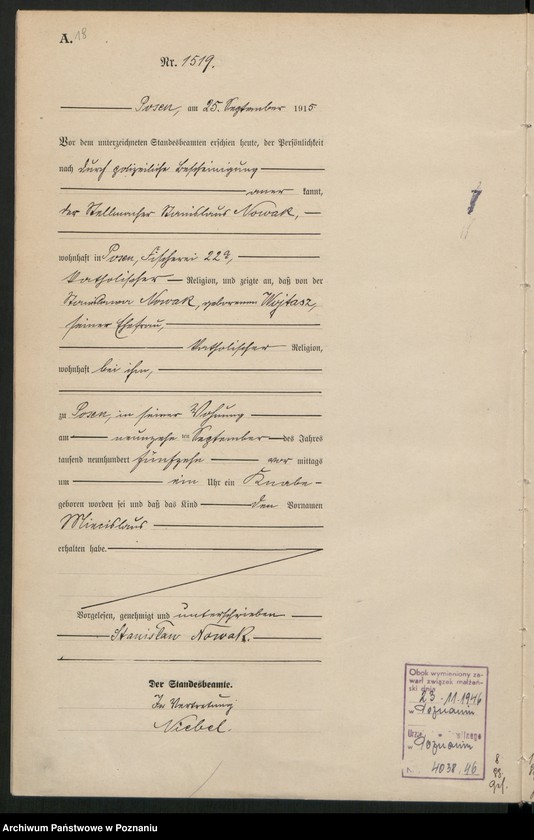 A. 18
Nr. 1519.
Posen, am 25. September 1915
Vor dem unterzeichneten Standesbeamten erschien heute, der Persönlichkeit
nach durch polizeiliche Bescheinigung
aner kannt,
der Stellmacher Stanislaus Nowak,
wohnhaft in Posen, Fischerei 22a,
katholischer Religion, und zeigte an, daß von der
Stanislawa Nowak, geborenen Wojtasz,
seiner Ehefrau,
katholischer Religion,
wohnhaft bei ihm,
zu Posen, in seiner Wohnung
am neunzehn ten September des Jahres
tausend neunhundert fünfzehn vor mittags
um ein Uhr ein Knabe
geboren worden sei und daß das Kind den Vornamen
Miecislaus
erhalten habe.
Vorgelesen, genehmigt und unterschrieben
Stanisław Nowak.
Der Standesbeamte.
In Vertretung
Niebel.
Obok wymieniony za-
warł związek małżeń-
ski dnia
23.11.1946
w Poznaniu
Urz
w Poznaniu
4038.46.
Archiwum Państwowe w Poznaniu